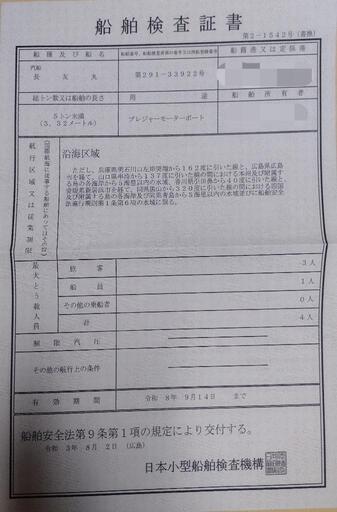 船舶検査証書
第2-1542号(書換)
船種及び船名
船舶番号、船舶検査済票の番号又は漁船登録番号
船籍港又は定係港
汽船
長友丸
第291-33922号
総トン数又は船舶の長さ
用途
船舶所有者
5トン未満
(3.32メートル)
プレジャーモーターボート
航行区域又は従業制限
沿海区域
ただし、兵庫県明石川口左岸突端から162度に引いた線と、広島県広島
市を経て、山口県
から137度に引いた線の間における本州及び附属す
る島の各海岸から5海里以内の水域、香川県
から40度に引いた線と、
愛媛県新居浜市を経て、同県
から320度に引いた線の間における四国
及び附属する島の各海岸及び
から5海里以内の水域並びに船舶安全
法施行規則第1条第6項の水域に限る。
最大とう載人員
旅客
3人
船員
1人
その他の乗船者
0人
計
4人
制限汽圧
その他の航行上の条件
有効期間
令和 8年 9月14日 まで
船舶安全法第9条第1項の規定により交付する。
令和 3年 8月 2日 (広島)
日本小型船舶検査機構